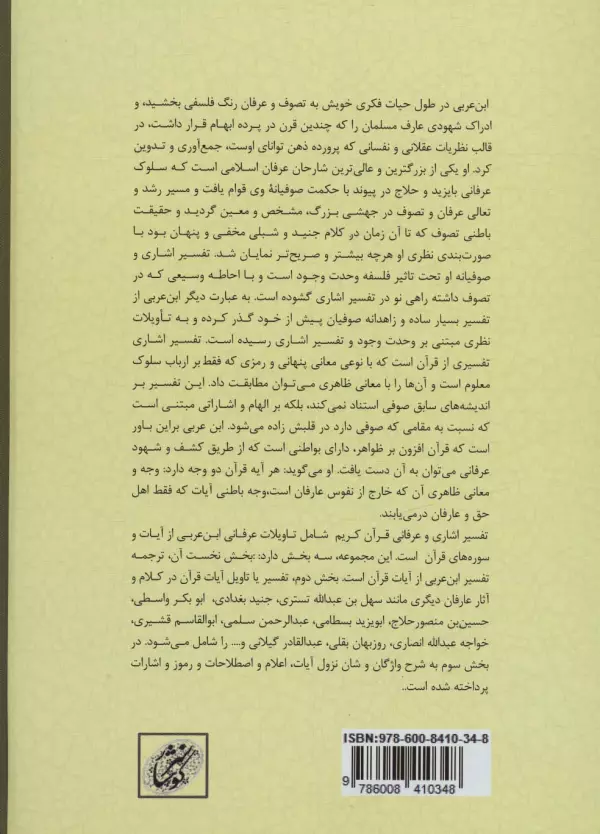 ابن‌عربی در طول حیات فکری خویش به تصوف و عرفان رنگ فلسفی بخشید، و
ادراک شهودی عارف مسلمان را که چندین قرن در پرده ابهام قرار داشت، در
قالب نظریات عقلانی و نفسانی که پرورده ذهن توانای اوست، جمع‌آوری و تدوین
کرد. او یکی از بزرگترین و عالی‌ترین شارحان عرفان اسلامی است که سلوک
عرفانی بایزید و حلاج در پیوند با حکمت صوفیانهٔ وی قوام یافت و مسیر رشد و
تعالی عرفان و تصوف در جهشی بزرگ، مشخص و معین گردید و حقیقت
باطنی تصوف که تا آن زمان در کلام جنید و شبلی مخفی و پنهان بود با
صورت‌بندی نظری او هرچه بیشتر و صریح‌تر نمایان شد. تفسیر اشاری و
صوفیانه او تحت تاثیر فلسفه وحدت وجود است و با احاطه وسیعی که در
تصوف داشته راهی نو در تفسیر اشاری گشوده است. به عبارت دیگر ابن‌عربی از
تفسیر بسیار ساده و زاهدانه صوفیان پیش از خود گذر کرده و به تأویلات
نظری مبتنی بر وحدت وجود و تفسیر اشاری رسیده است. تفسیر اشاری
تفسیری از قرآن است که با نوعی معانی پنهانی و رمزی که فقط بر ارباب سلوک
معلوم است و آن‌ها را با معانی ظاهری می‌توان مطابقت داد. این تفسیر بر
اندیشه‌های سابق صوفی استناد نمی‌کند، بلکه بر الهام و اشاراتی مبتنی است
که نسبت به مقامی که صوفی دارد در قلبش زاده می‌شود. ابن عربی براین باور
است که قرآن افزون بر ظواهر، دارای بواطنی است که از طریق کشف و شهود
عرفانی می‌توان به آن دست یافت. او می‌گوید: هر آیه قرآن دو وجه دارد: وجه و
معانی ظاهری آن که خارج از نفوس عارفان است،وجه باطنی آیات که فقط اهل
حق و عارفان درمی‌یابند.
تفسیر اشاری و عرفانی قرآن کریم شامل تاویلات عرفانی ابن‌عربی از آیات و
سوره‌های قرآن است. این مجموعه، سه بخش دارد: :بخش نخست آن، ترجمه
تفسیر ابن‌عربی از آیات قرآن است. بخش دوم، تفسیر یا تاویل آیات قرآن در کلام و
آثار عارفان دیگری مانند سهل بن عبدالله تستری، جنید بغدادی، ابو بکر واسطی،
حسین‌بن منصورحلاج، ابویزید بسطامی، عبدالرحمن سلمی، ابوالقاسم قشیری،
خواجه عبدالله انصاری، روزبهان بقلی، عبدالقادر گیلانی و.... را شامل می‌شود. در
بخش سوم به شرح واژگان و شان نزول آیات، اعلام و اصطلاحات و رموز و اشارات
پرداخته شده است..
ISBN:978-600-8410-34-8
9 786008 410348